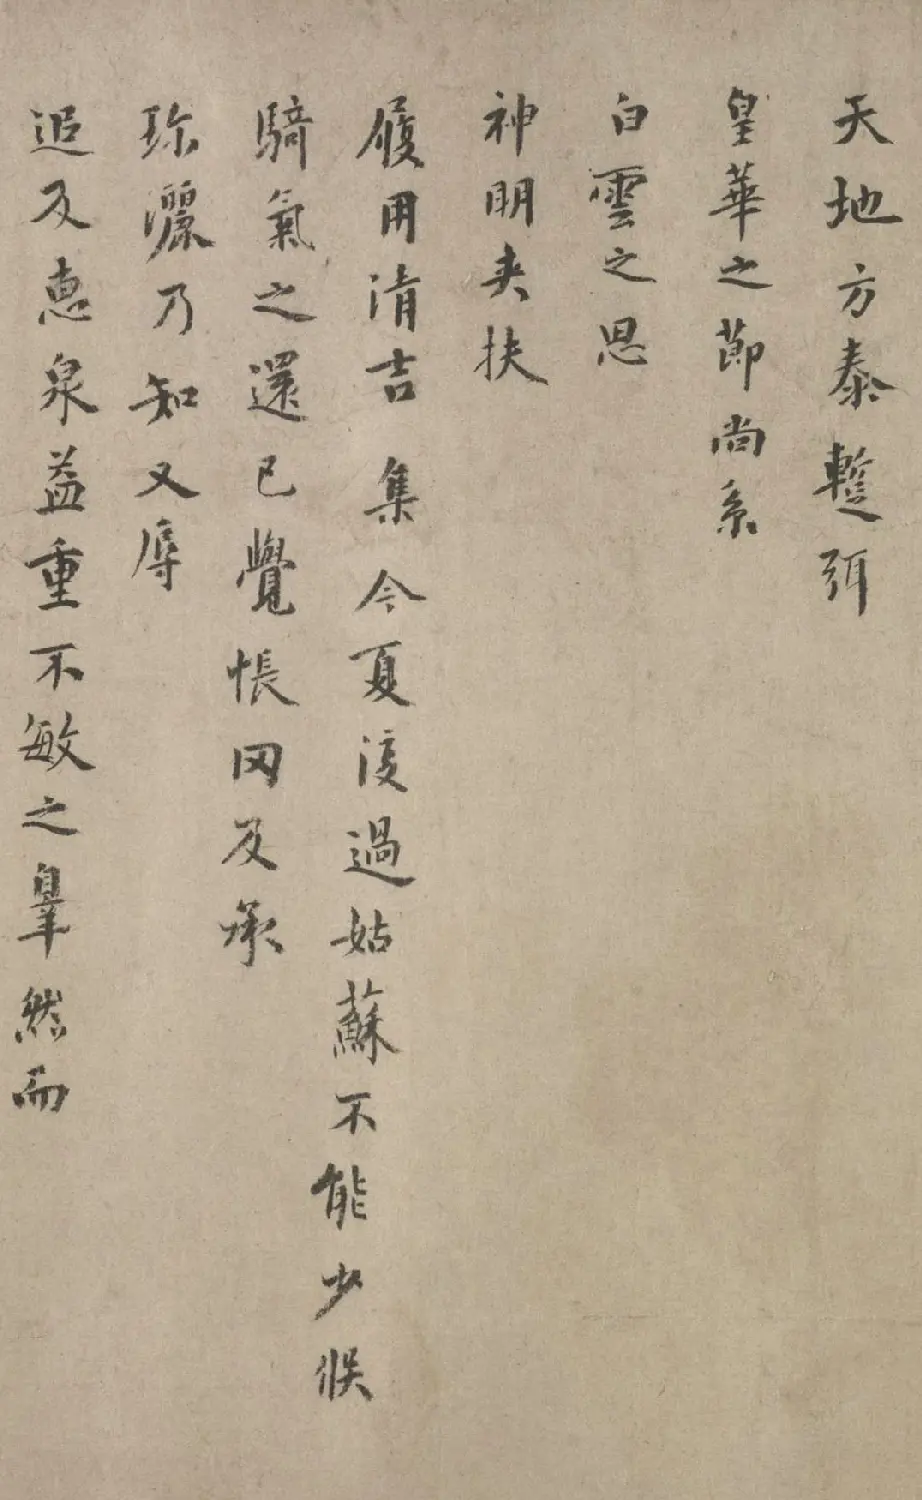 天地方泰蹔弭
皇華之節尚系
白雲之思
神明夾扶
履用清吉集今夏復過姑蘇不能少俟
騎氣之還已覺悵罔及承
珎灑乃知又辱
追及惠泉益重不敏之辠然而